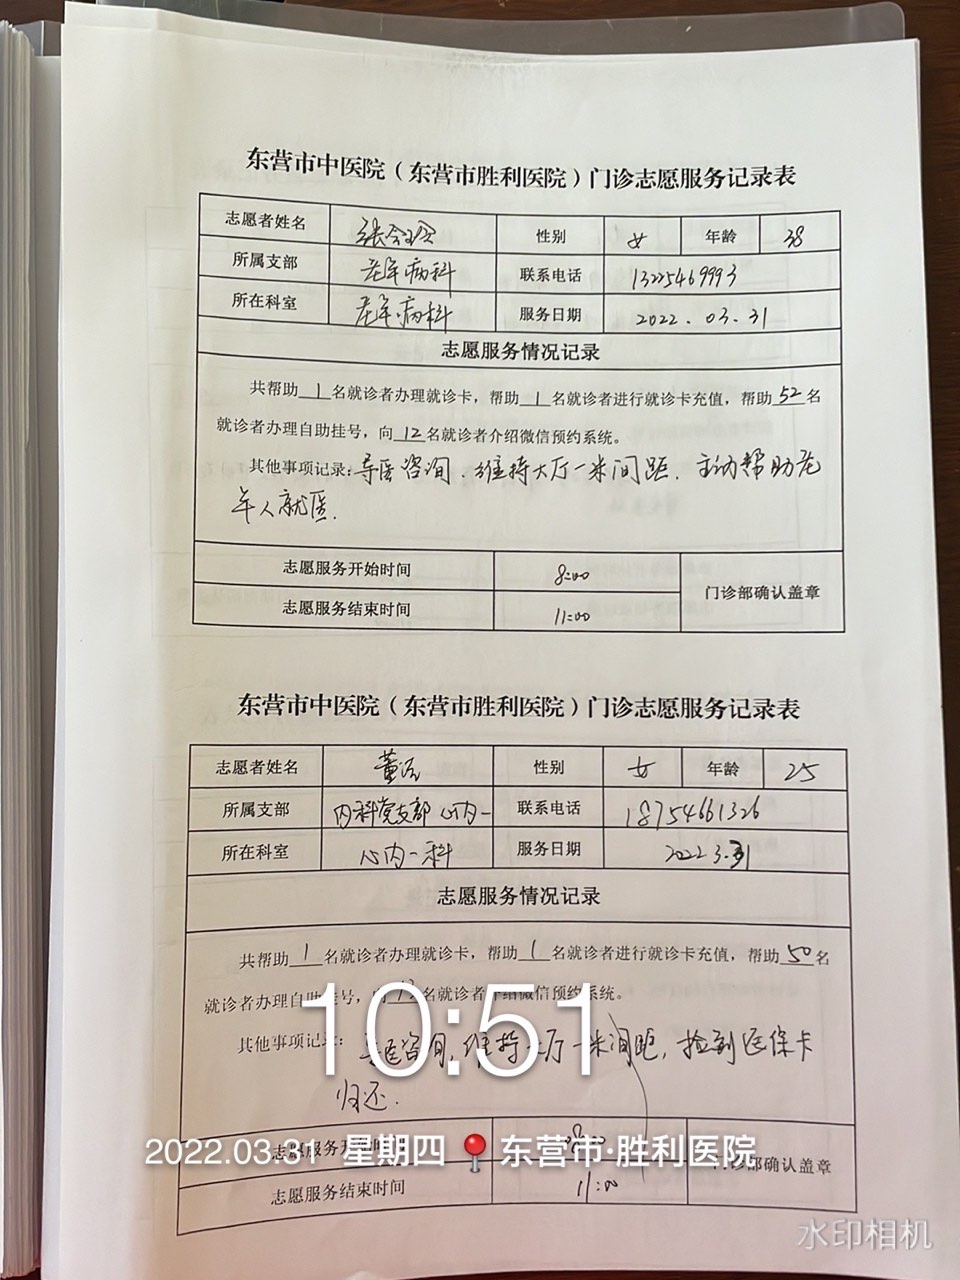 东营市中医院（东营市胜利医院）门诊志愿服务记录表
志愿者姓名 张会玲 性别 女 年龄 38
所属支部 老年病科 联系电话 13225469993
所在科室 老年病科 服务日期 2022.03.31
志愿服务情况记录
共帮助1名就诊者办理就诊卡，帮助1名就诊者进行就诊卡充值，帮助52名
就诊者办理自助挂号，向12名就诊者介绍微信预约系统。
其他事项记录：导医咨询.维持大厅一米间距.主动帮助老
年人就医.
志愿服务开始时间 8:00
门诊部确认盖章
志愿服务结束时间 11:00
东营市中医院（东营市胜利医院）门诊志愿服务记录表
志愿者姓名 董 性别 女 年龄 25
所属支部 内科党支部 心内一 联系电话 18754661326
所在科室 心内一科 服务日期 2022.3.31
志愿服务情况记录
共帮助1名就诊者办理就诊卡，帮助1名就诊者进行就诊卡充值，帮助50名
就诊者办理自助挂号，向名就诊者介绍微信预约系统。
10:51
其他事项记录：导医咨询，维持大厅一米间距，捡到医保卡
归还.
志愿服务开始时间 08:00
2022.03.31 星期四 东营市·胜利医院
门诊部确认盖章
志愿服务结束时间 11:00
水印相机